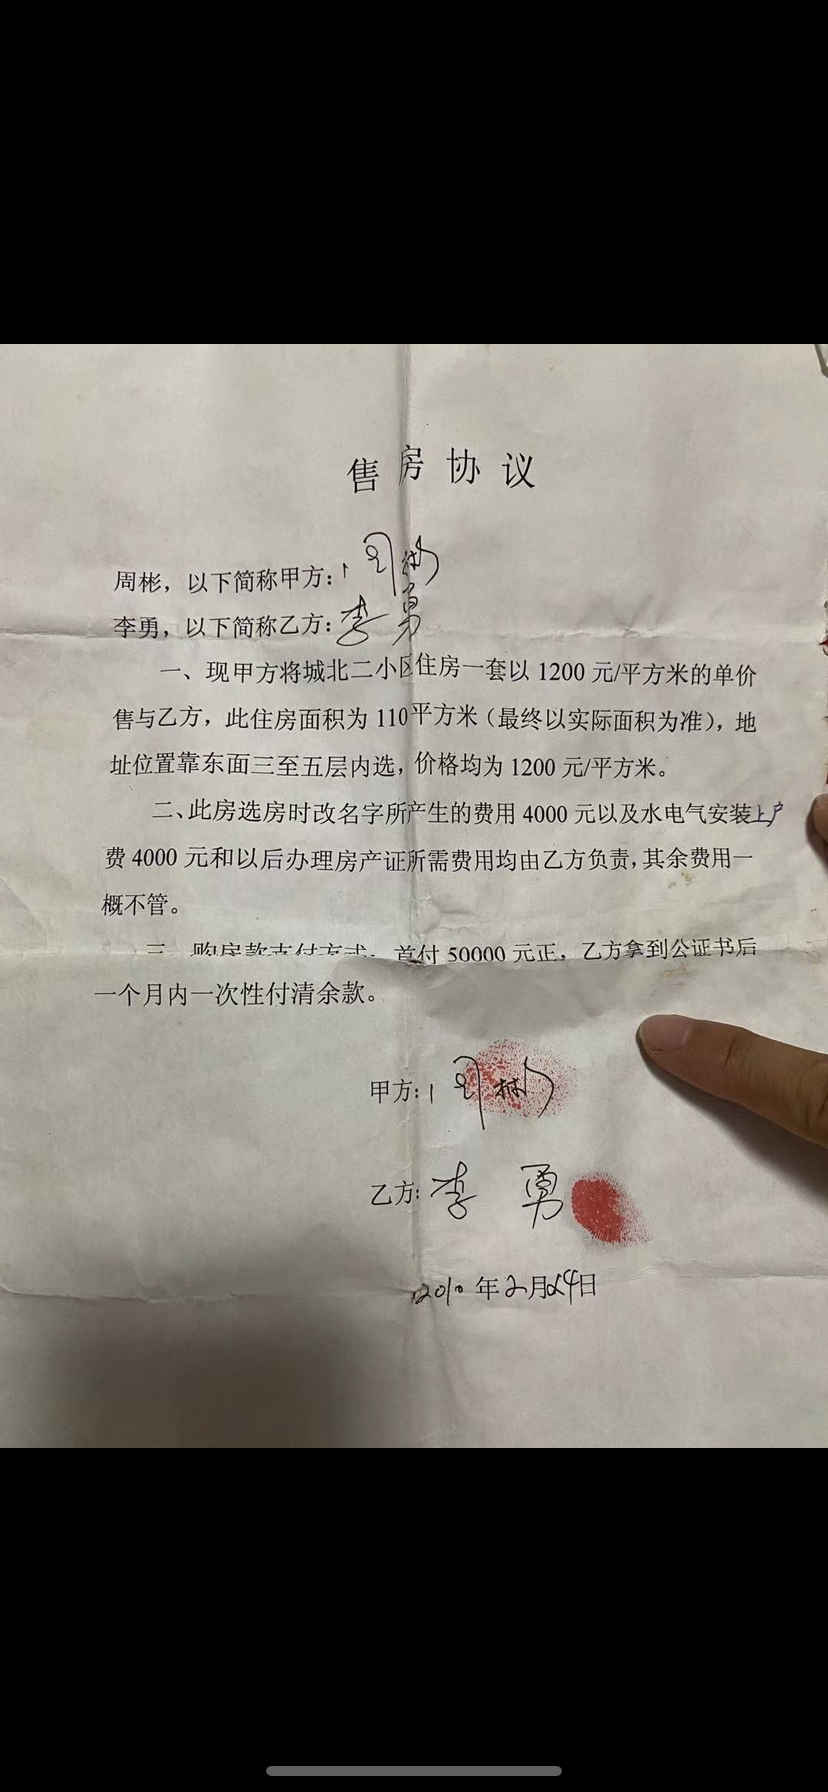 售房协议
周彬，以下简称甲方：周彬
李勇，以下简称乙方：李勇
一、现甲方将城北二小区住房一套以 1200 元/平方米的单价
售与乙方，此住房面积为 110平方米（最终以实际面积为准），地
址位置靠东面三至五层内选，价格均为 1200 元/平方米。
二、此房选房时改名字所产生的费用 4000 元以及水电气安装上户
费 4000 元和以后办理房产证所需费用均由乙方负责，其余费用一
概不管。
三、购房款支付方式：首付 50000 元正，乙方拿到公证书后
一个月内一次性付清余款。
甲方：周彬
乙方：李勇
2010 年2月24日